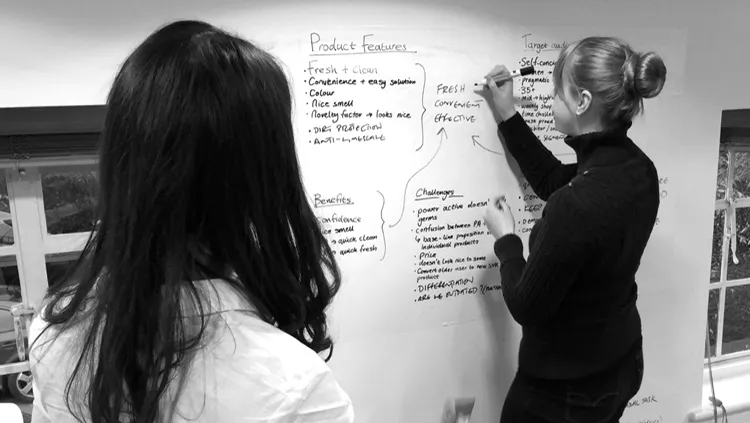 Product Features
• Fresh + Clean
• Convenience + easy solution
• Colour
• Nice smell
• Novelty factor → looks nice
• DIRT PROTECTION
• ANTI-LIMESCALE
FRESH
CONVENIENT
EFFECTIVE
Target
• Self-conc
pragmatic
35+
weekly shop
time challe
house proud
Benefits
Confidence
nice smell
→ quick clean
quick fresh
Challenges
• power active doesn't
germs
• confusion between PA +
↳ base-line proposition
individual products
• Price
• doesn't look nice to some
• Convert older user to new
product
• DIFFERENTIATION
• ARE WE OUTDATED?
TASK